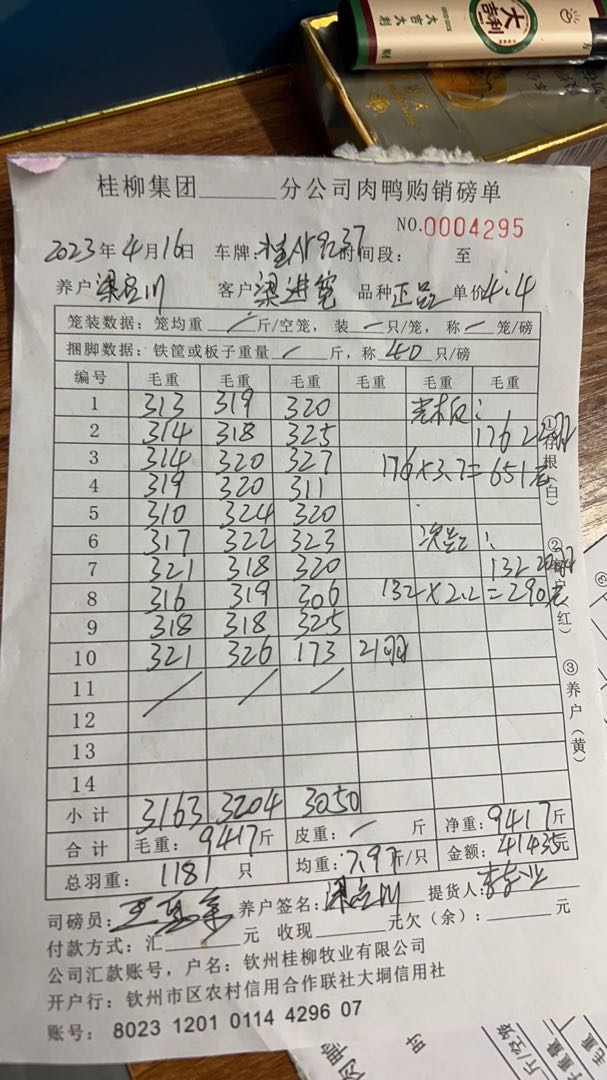 大吉利
大吉大利
财
桂柳集团______分公司肉鸭购销磅单
NO.0004295
2023年4月16日 车牌: 时间段: 至
养户 客户 梁进 品种 正品 单价 4.4
笼装数据: 笼均重 / 斤/空笼, 装 一 只/笼, 称 一 笼/磅
捆脚数据: 铁筐或板子重量 / 斤, 称 40 只/磅
编号 毛重 毛重 毛重 毛重 毛重 毛重
1 313 319 320
2 314 318 325 176
3 314 320 327 176×3.7=651元
4 319 320 311
5 310 324 320
6 317 322 323 次品:
7 321 318 320 132
8 316 319 306 132×2.2=290元
9 318 318 325
10 321 326 173 21羽
11 / / /
12
13
14
小计 3163 3204 3050
合计 毛重: 9417斤 皮重: / 斤 净重: 9417斤
总羽重: 1181 只 均重: 7.97斤/只 金额: 41435元
①存根(白)
(红)
③养户(黄)
司磅员: 养户签名: 提货人:
付款方式: 汇______元 收现______元欠(余): ______元
公司汇款账号, 户名: 钦州桂柳牧业有限公司
开户行: 钦州市区农村信用合作联社大垌信用社
账号: 8023 1201 0114 4296 07
时
斤/空笼